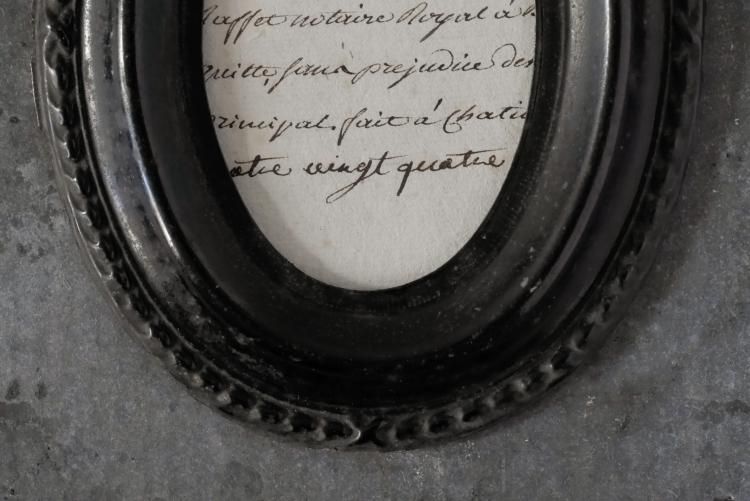 Taffet notaire Royal à
quitte, sans prejudice des
principal. fait à Chatil
atre vingt quatre